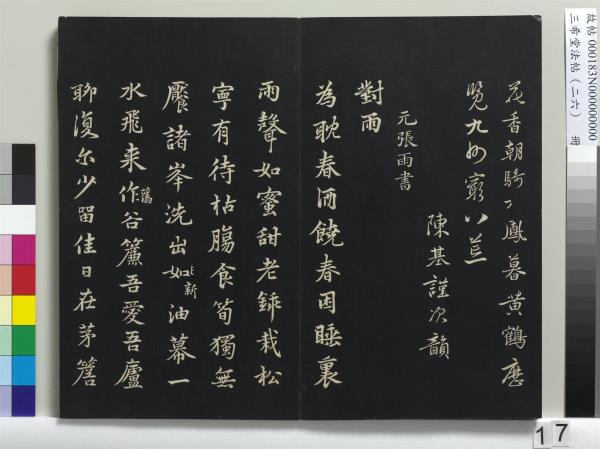 花香朝騎丁鳳暮黃鶴歷
覽九州窮八荒
陳基謹次韻
元張雨書
對雨
為耽春酒饒春困睡裏
雨聲如蜜甜老銖栽松
寧有待枯腸食筍獨無
饜諸峯洗出如沐新油幕一
水飛來作舊谷簾吾愛吾廬
聊復尔少留佳日在茅簷
故帖 000183N000000000
三希堂法帖（二六） 冊
17